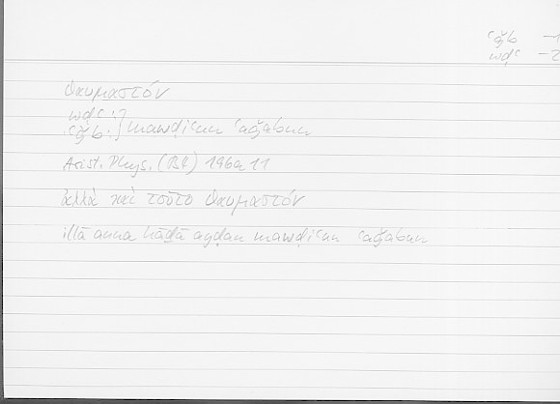 ʿǧb -1
wḍʿ -2
θαυμαστόν
wḍʿ :
ʿǧb : } mawḍiʿun ʿaǧabun
Arist. Phys. 196a11
ἀλλὰ καὶ τοῦτο θαυμαστόν
illā anna hāḏā ayḍan mawḍiʿun ʿaǧabun